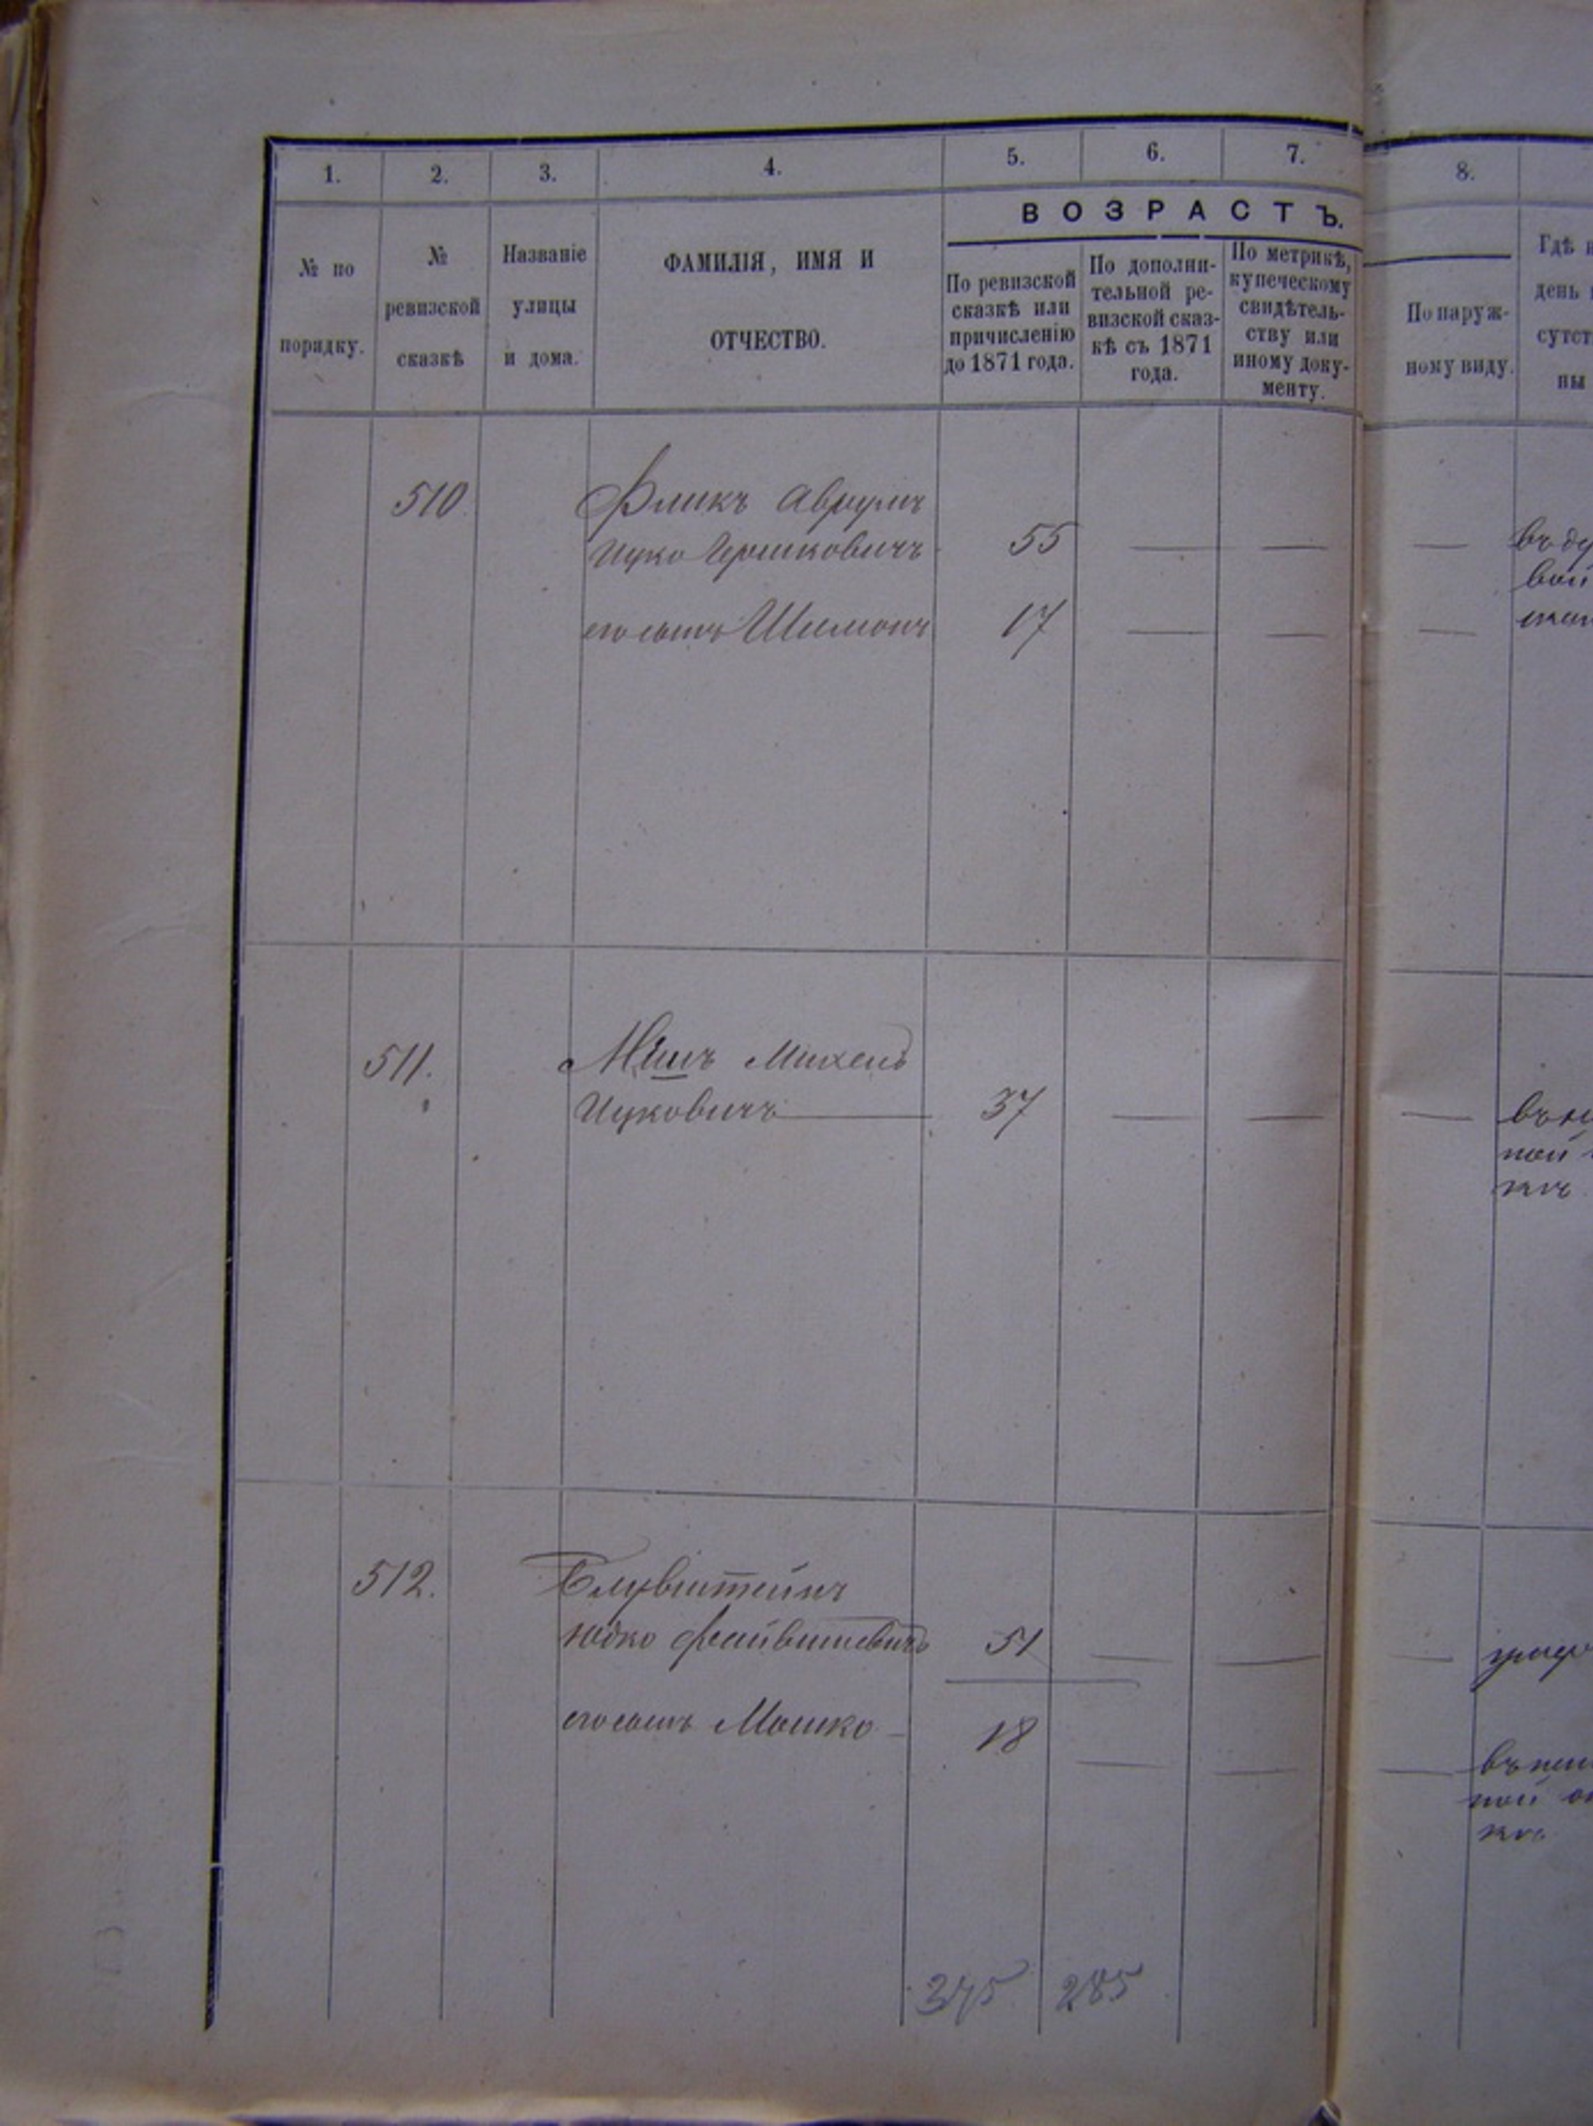 1. 2. 3. 4. 5. 6. 7. 8.
ВОЗРАСТЪ.
№ по
порядку.
№
ревизской
сказкѣ
Названіе
улицы
и дома.
ФАМИЛІЯ, ИМЯ И
ОТЧЕСТВО.
По ревизской
сказкѣ или
причисленію
до 1871 года.
По дополни-
тельной ре-
визской сказ-
кѣ съ 1871
года.
По метрикѣ,
купеческому
свидѣтель-
ству или
иному доку-
менту.
По наруж-
ному виду.
Гдѣ
день
сутст
ны
510 Фликъ Аврумъ
Ицко Гершковичъ 55 — — —
его сынъ Шимонъ 17 — — —
511. Михель
Ицковичъ 37 — — —
ной
кѣ
512. Блувштейнъ
Юдко Файвишевичъ 51 — — —
его сынъ Мошко 18 — — —
ной
кѣ
345 285